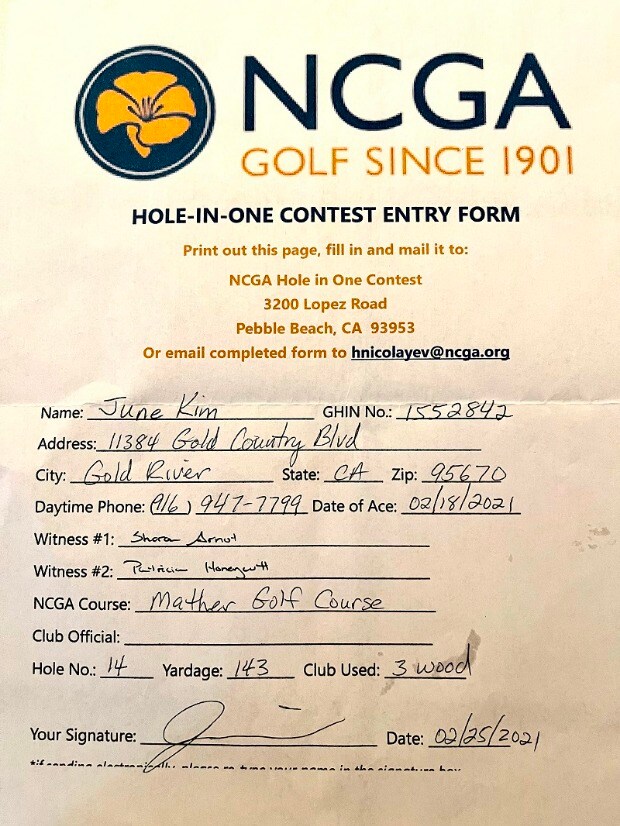 NCGA
GOLF SINCE 1901
HOLE-IN-ONE CONTEST ENTRY FORM
Print out this page, fill in and mail it to:
NCGA Hole in One Contest
3200 Lopez Road
Pebble Beach, CA 93953
Or email completed form to hnicolayev@ncga.org
Name: June Kim GHIN No.: 1552842
Address: 11384 Gold Country Blvd
City: Gold River State: CA Zip: 95670
Daytime Phone: (916) 947-7799 Date of Ace: 02/18/2021
Witness #1: Sharon Arnot
Witness #2: Patricia
NCGA Course: Mather Golf Course
Club Official:
Hole No.: 14 Yardage: 143 Club Used: 3 wood
Your Signature: Date: 02/25/2021
*if sending electronically, please to type your name in the signature box